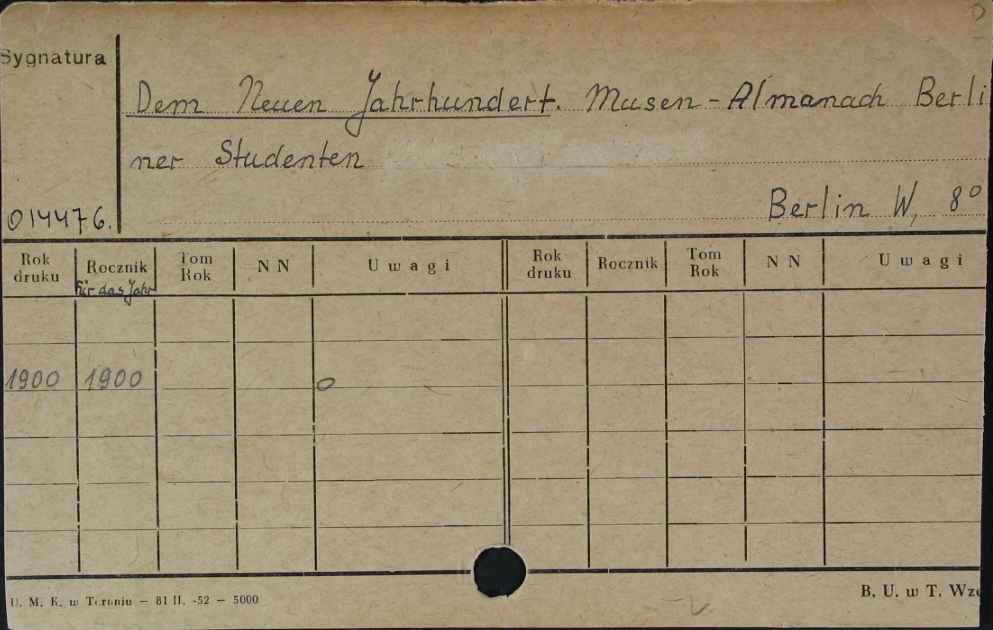 Sygnatura
Dem Neuen Jahrhundert. Musen-Almanach Berli
ner Studenten
014476.
Berlin W, 8°
Rok druku Rocznik Tom Rok NN Uwagi Rok druku Rocznik Tom Rok NN Uwagi
für das Jahr
1900 1900 o
U. M. K. w Toruniu — 81 II. -52 — 5000
B. U. w T. Wzó